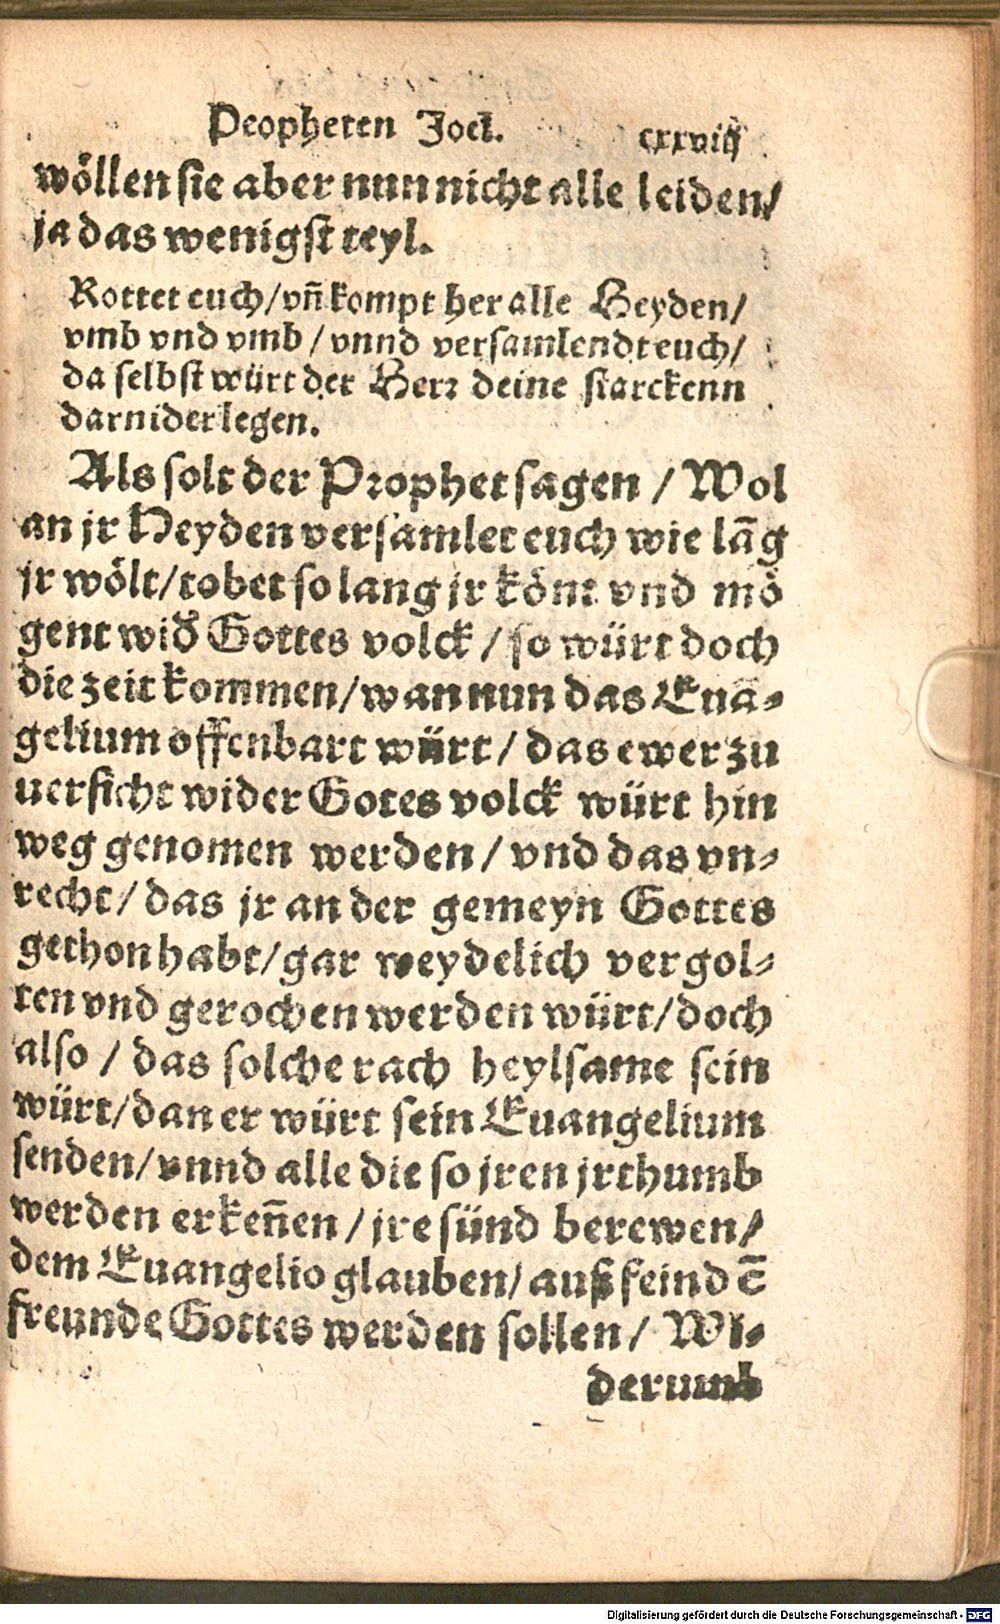 Propheten Joel. cxxviij
wöllen sie aber nun nicht alle leiden/
ja das wenigst teyl.
Rottet euch/vñ kompt her alle Heyden/
vmb vnd vmb / vnnd versamlendt euch/
da selbst würt der Herr deine starckenn
darniderlegen.
Als solt der Prophet sagen / Wol
an jr Heyden versamlet euch wie lãg
jr wölt/tobet so lang jr könt vnd mö
gent wid̃ Gottes volck / so würt doch
die zeit kommen/wan nun das Euã-
gelium offenbart würt / das ewer zu
uersicht wider Gotes volck würt hin
weg genomen werden / vnd das vn-
recht/ das jr an der gemeyn Gottes
gethon habt/gar weydelich vergol-
ten vnd gerochen werden würt/doch
also / das solche rach heylsame sein
würt/dan er würt sein Euangelium
senden/vnnd alle die so jren jrthumb
werden erkeñen / jre sünd berewen/
dem Euangelio glauben/ auß feindẽ
freunde Gottes werden sollen/ Wi-
derumb
Digitalisierung gefördert durch die Deutsche Forschungsgemeinschaft - DFG